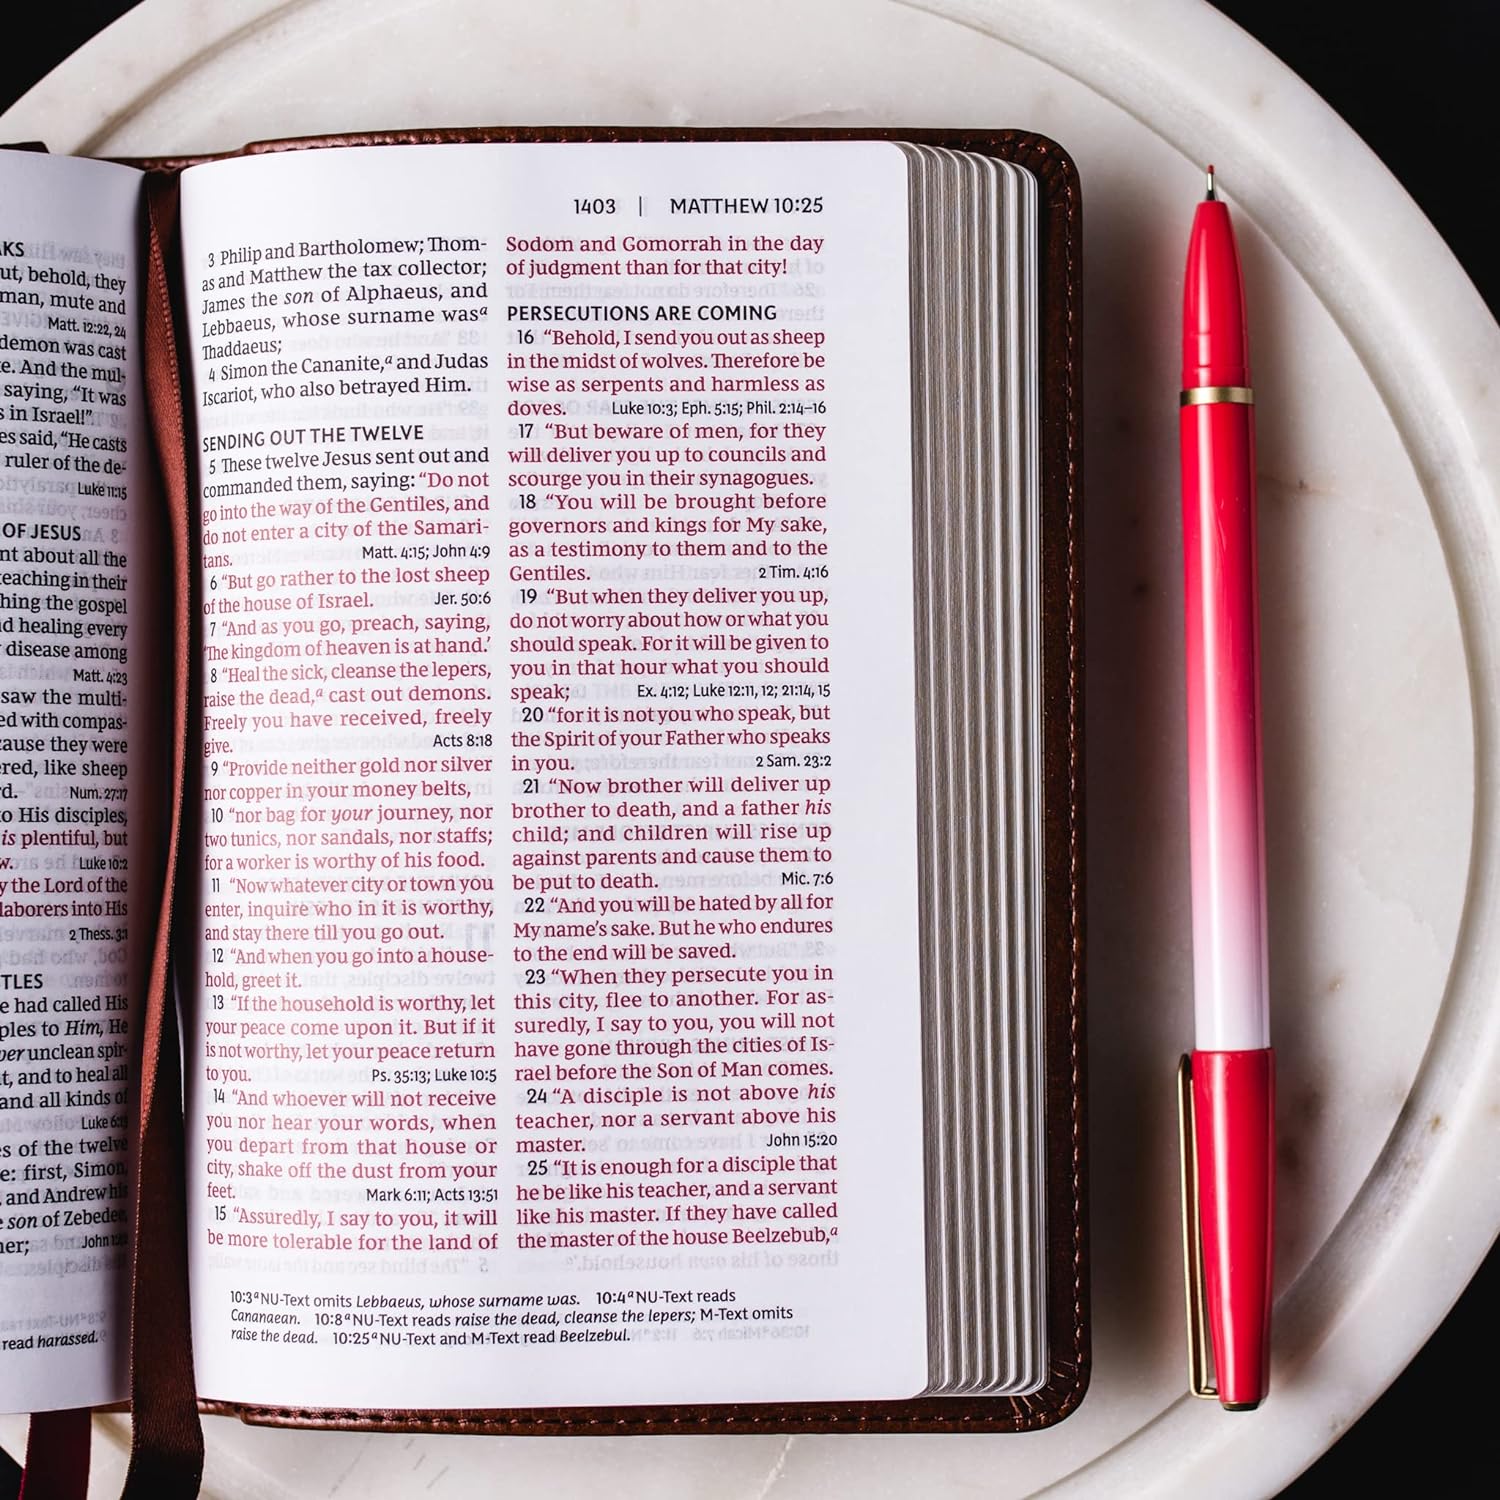 AKS
ut, behold, they
man, mute and
Matt. 12:22, 24
demon was cast
e. And the mul-
saying, "It was
s in Israel!"
es said, "He casts
ruler of the de-
Luke 11:15
OF JESUS
nt about all the
teaching in their
hing the gospel
d healing every
disease among
Matt. 4:23
saw the multi-
ed with compas-
cause they were
ered, like sheep
rd. Num. 27:17
to His disciples,
is plentiful, but
w. Luke 10:2
y the Lord of the
laborers into His
2 Thess. 3:1
TLES
e had called His
ples to Him, He
per unclean spir-
t, and to heal all
and all kinds of
Luke 6:13
es of the twelve
e: first, Simon,
and Andrew his
son of Zebedee,
her; John
read harassed.
1403 | MATTHEW 10:25
3 Philip and Bartholomew; Thom-
as and Matthew the tax collector;
James the son of Alphaeus, and
Lebbaeus, whose surname wasᵃ
Thaddaeus;
4 Simon the Cananite,ᵃ and Judas
Iscariot, who also betrayed Him.
SENDING OUT THE TWELVE
5 These twelve Jesus sent out and
commanded them, saying: "Do not
go into the way of the Gentiles, and
do not enter a city of the Samari-
tans. Matt. 4:15; John 4:9
6 "But go rather to the lost sheep
of the house of Israel. Jer. 50:6
7 "And as you go, preach, saying,
'The kingdom of heaven is at hand.'
8 "Heal the sick, cleanse the lepers,
raise the dead,ᵃ cast out demons.
Freely you have received, freely
give. Acts 8:18
9 "Provide neither gold nor silver
nor copper in your money belts,
10 "nor bag for your journey, nor
two tunics, nor sandals, nor staffs;
for a worker is worthy of his food.
11 "Now whatever city or town you
enter, inquire who in it is worthy,
and stay there till you go out.
12 "And when you go into a house-
hold, greet it.
13 "If the household is worthy, let
your peace come upon it. But if it
is not worthy, let your peace return
to you. Ps. 35:13; Luke 10:5
14 "And whoever will not receive
you nor hear your words, when
you depart from that house or
city, shake off the dust from your
feet. Mark 6:11; Acts 13:51
15 "Assuredly, I say to you, it will
be more tolerable for the land of
Sodom and Gomorrah in the day
of judgment than for that city!
PERSECUTIONS ARE COMING
16 "Behold, I send you out as sheep
in the midst of wolves. Therefore be
wise as serpents and harmless as
doves. Luke 10:3; Eph. 5:15; Phil. 2:14–16
17 "But beware of men, for they
will deliver you up to councils and
scourge you in their synagogues.
18 "You will be brought before
governors and kings for My sake,
as a testimony to them and to the
Gentiles. 2 Tim. 4:16
19 "But when they deliver you up,
do not worry about how or what you
should speak. For it will be given to
you in that hour what you should
speak; Ex. 4:12; Luke 12:11, 12; 21:14, 15
20 "for it is not you who speak, but
the Spirit of your Father who speaks
in you. 2 Sam. 23:2
21 "Now brother will deliver up
brother to death, and a father his
child; and children will rise up
against parents and cause them to
be put to death. Mic. 7:6
22 "And you will be hated by all for
My name's sake. But he who endures
to the end will be saved.
23 "When they persecute you in
this city, flee to another. For as-
suredly, I say to you, you will not
have gone through the cities of Is-
rael before the Son of Man comes.
24 "A disciple is not above his
teacher, nor a servant above his
master. John 15:20
25 "It is enough for a disciple that
he be like his teacher, and a servant
like his master. If they have called
the master of the house Beelzebub,ᵃ
10:3ᵃNU-Text omits Lebbaeus, whose surname was. 10:4ᵃNU-Text reads
Cananaean. 10:8ᵃNU-Text reads raise the dead, cleanse the lepers; M-Text omits
raise the dead. 10:25ᵃNU-Text and M-Text read Beelzebul.